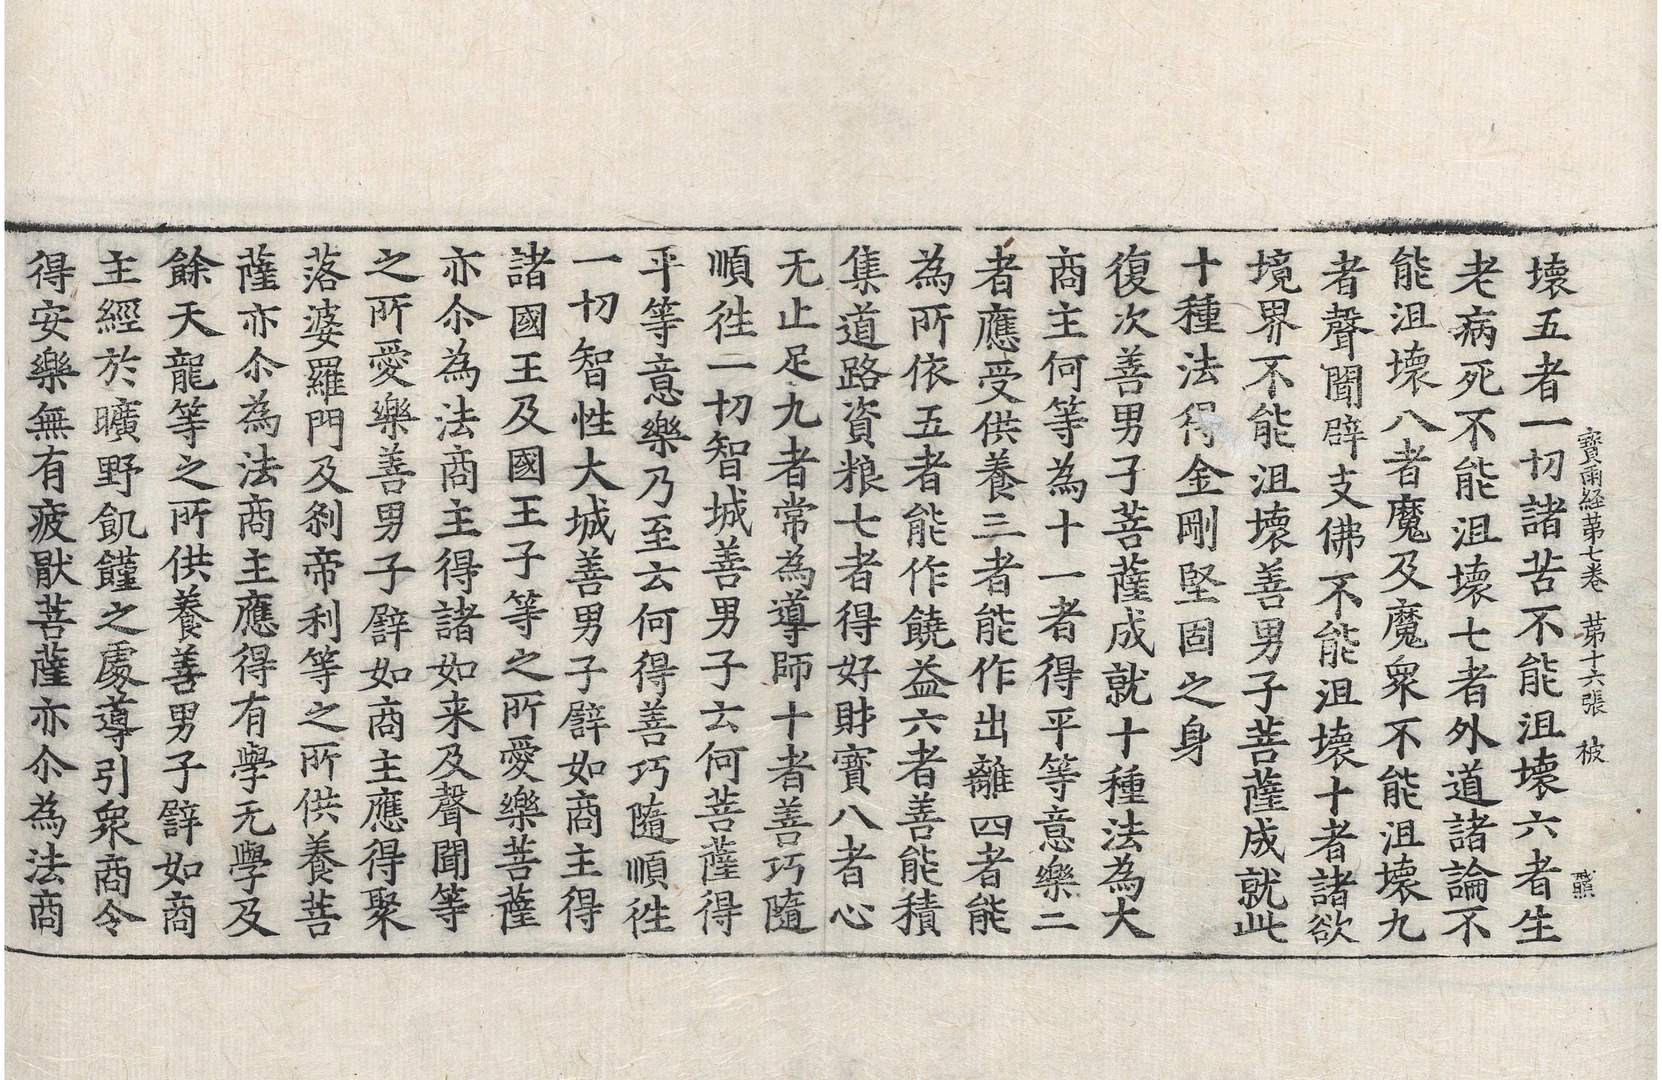 寶雨経苐七巻 苐十六張 被
壞五者一切諸苦不能沮壞六者生
老病死不能沮壞七者外道諸論不
能沮壞八者魔及魔衆不能沮壞九
者聲聞辟支佛不能沮壞十者諸欲
境界不能沮壞善男子菩薩成就此
十種法得金剛堅固之身
復次善男子菩薩成就十種法為大
商主何等為十一者得平等意樂二
者應受供養三者能作出離四者能
為所依五者能作饒益六者善能積
集道路資粮七者得好財寶八者心
无止足九者常為導師十者善巧隨
順徃一切智城善男子云何菩薩得
平等意樂乃至云何得善巧隨順徃
一切智性大城善男子譬如商主得
諸國王及國王子等之所愛樂菩薩
亦尒為法商主得諸如来及聲聞等
之所愛樂善男子譬如商主應得聚
落婆羅門及剎帝利等之所供養菩
薩亦尒為法商主應得有學无學及
餘天龍等之所供養善男子譬如商
主經於曠野飢饉之處導引衆商令
得安樂無有疲猒菩薩亦尒為法商